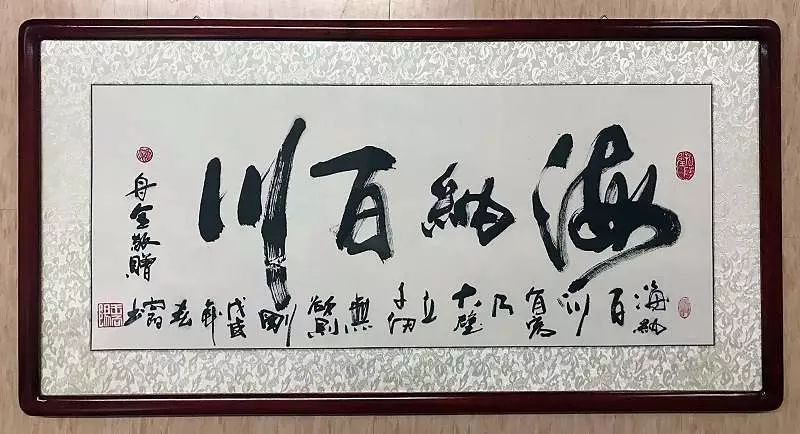 海納百川
海納百川有容乃大壁立千仞無欲則剛戊戌年春
舟全敬贈